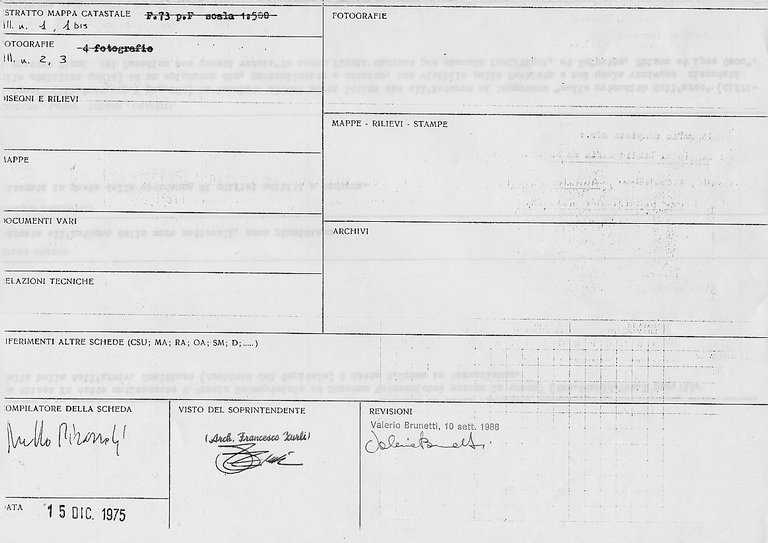 STRATTO MAPPA CATASTALE F.73 p.F scala 1:500
Ill. n. 1, 1 bis
OTOGRAFIE 4 fotografie
Ill. n. 2, 3
DISEGNI E RILIEVI
MAPPE
DOCUMENTI VARI
RELAZIONI TECNICHE
FOTOGRAFIE
MAPPE - RILIEVI - STAMPE
ARCHIVI
IFERIMENTI ALTRE SCHEDE (CSU; MA; RA; OA; SM; D;.....)
OMPILATORE DELLA SCHEDA
DATA 15 DIC. 1975
VISTO DEL SOPRINTENDENTE
(Arch. Francesco Zurli)
REVISIONI
Valerio Brunetti, 10 sett. 1988
Valerio Brunetti